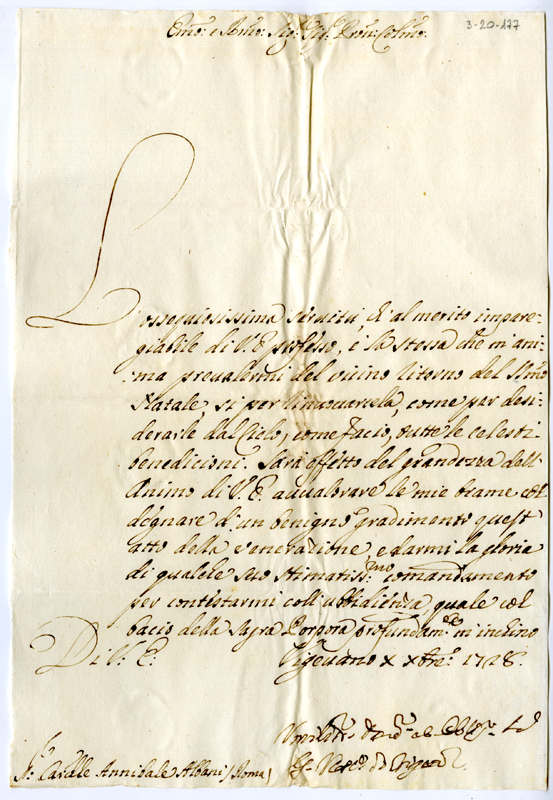 3-20-177
Emo: e Rmo: Sig: Sig: Pron: Colmo:
L'ossequiosissima servitù, ch'al merito impare-
giabile di V.E. professo, è la stessa che m'ani-
ma prevalermi del vicino ritorno del SSmo
Natale, sì per rinuovarcela, come per desi-
derarle dal Cielo, come faccio, tutte le celesti
benedicioni. Sarà effetto del grandezza dell'
Animo di V.E. avvalorare le mie brame col
degnare d'un benigno gradimento quest'
atto della venerazione, e darmi la gloria
di qualche suo stimatiss:mo comandamento
per contestarmi coll'ubbidienza, quale col
bacio della Sagra Porpora profundam:te m'inchino
Di V: E: Vigevano X Xbre: 1728.
Sr: Cardle Annibale Albani / Roma /